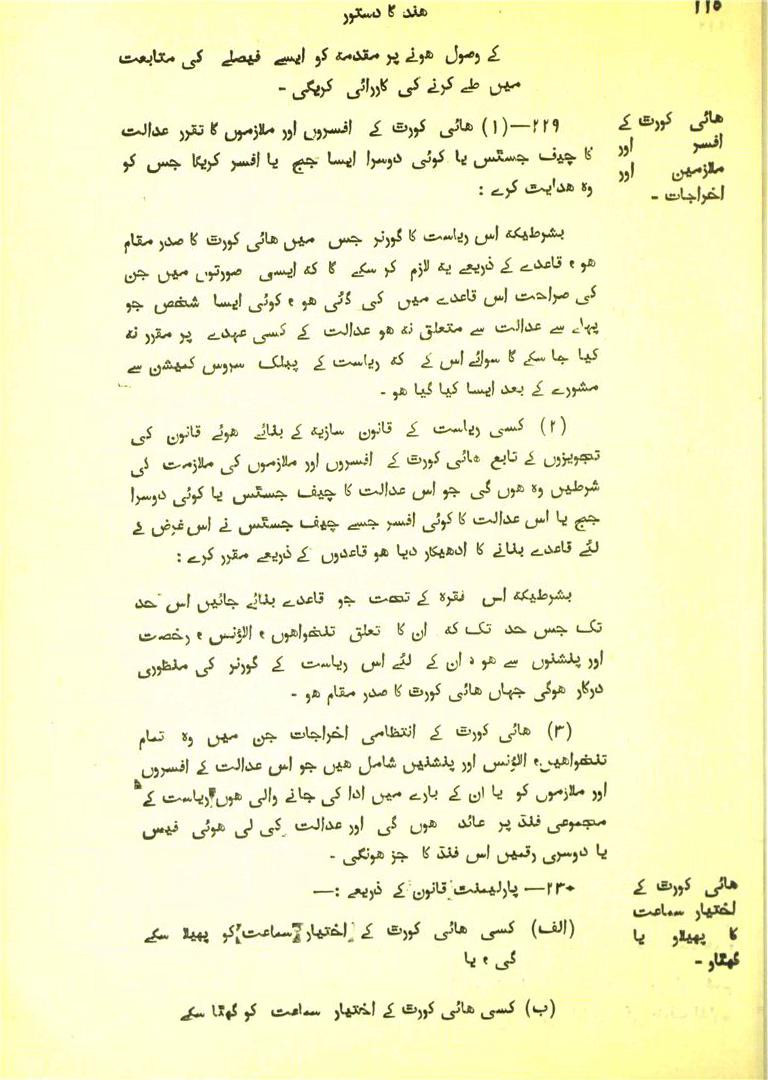 ۱۱۵
ہند کا دستور
کے وصول ہونے پر مقدمہ کو ایسے فیصلے کی متابعت
میں طے کرنے کی کارروائی کریگی -
ہائی کورٹ کے
افسر اور
ملازمین اور
اخراجات -
۲۲۹—(۱) ہائی کورٹ کے افسروں اور ملازموں کا تقرر عدالت
کا چیف جسٹس یا کوئی دوسرا ایسا جج یا افسر کریگا جس کو
وہ ہدایت کرے :
بشرطیکہ اس ریاست کا گورنر جس میں ہائی کورٹ کا صدر مقام
ہو ، قاعدے کے ذریعے یہ لازم کر سکے گا کہ ایسی صورتوں میں جن
کی صراحت اس قاعدے میں کی گئی ہو ، کوئی ایسا شخص جو
پہلے سے عدالت سے متعلق نہ ہو عدالت کے کسی عہدے پر مقرر نہ
کیا جا سکے گا سوائے اس کے کہ ریاست کے پبلک سروس کمیشن سے
مشورے کے بعد ایسا کیا گیا ہو -
(۲) کسی ریاست کے قانون سازیہ کے بنائے ہوئے قانون کی
تجویزوں کے تابع ہائی کورٹ کے افسروں اور ملازموں کی ملازمت کی
شرطیں وہ ہوں گی جو اس عدالت کا چیف جسٹس یا کوئی دوسرا
جج یا اس عدالت کا کوئی افسر جسے چیف جسٹس نے اس غرض کے
لئے قاعدے بنانے کا ادھیکار دیا ہو قاعدوں کے ذریعے مقرر کرے :
بشرطیکہ اس فقرہ کے تحت جو قاعدے بنائے جائیں اس حد
تک جس حد تک کہ ان کا تعلق تنخواہوں ، الاؤنس ، رخصت
اور پنشنوں سے ہو ، ان کے لئے اس ریاست کے گورنر کی منظوری
درکار ہوگی جہاں ہائی کورٹ کا صدر مقام ہو -
(۳) ہائی کورٹ کے انتظامی اخراجات جن میں وہ تمام
تنخواہیں ، الاؤنس اور پنشنیں شامل ہیں جو اس عدالت کے افسروں
اور ملازموں کو یا ان کے بارے میں ادا کی جانے والی ہوں ریاست کے
مجموعی فنڈ پر عائد ہوں گی اور عدالت کی لی ہوئی فیس
یا دوسری رقمیں اس فنڈ کا جز ہونگی -
ہائی کورٹ کے
اختیار سماعت
کا پھیلاو یا
گھٹاو -
۲۳۰— پارلیمنٹ قانون کے ذریعے :—
(الف) کسی ہائی کورٹ کے اختیار سماعت کو پھیلا سکے
گی ، یا
(ب) کسی ہائی کورٹ کے اختیار سماعت کو گھٹا سکے